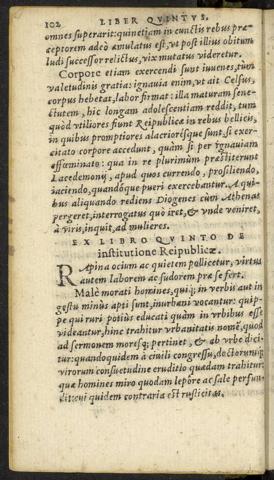 102 LIBER QVINTVS,
omnes superarit: quinetiam in cunctis rebus præ-
ceptorem adeò æmulatus est, vt post illius obitum
ludi successor relictus, vix mutatus videretur.
Corpore etiam exercendi sunt iuuenes, tùm
valetudinis gratia: ignauia enim, vt ait Celsus,
corpus hebetat, labor firmat: illa maturam sene-
ctutem, hic longam adolescentiam reddit, tum
quòd vtiliores fiunt Reipublicæ in rebus bellicis,
in quibus promptiores alacrioresque sunt, si exer-
citato corpore accedunt, quàm si per ignauiam
effœminato: qua in re plurimùm præstiterunt
Lacedemonij, apud quos currendo, prosiliendo,
iaciendo, quandóque pueri exercebantur. A qui-
bus aliquando rediens Diogenes cùm Athenas
pergeret, interrogatus quò iret, & vnde veniret,
à viris, inquit, ad mulieres.
EX LIBRO QVINTO DE
institutione Reipublicæ.
RApina ocium ac quietem pollicetur, virtus
autem laborem ac sudorem præ se fert.
Malè morati homines, qui; in verbis aut in
gestu minùs apti sunt, inurbani vocantur: quip-
pe qui ruri potiùs educati quàm in vrbibus esse
videantur, hinc trahitur vrbanitatis nomē, quod
ad sermonem moresq; pertinet, & ab vrbe dici-
tur: quandoquidem à ciuili congressu, doctorumq;
virorum consuetudine eruditio quædam trahitur:
quæ homines miro quodam lepôre ac sale perfun-
dit: cui quidem contraria est rusticitas.